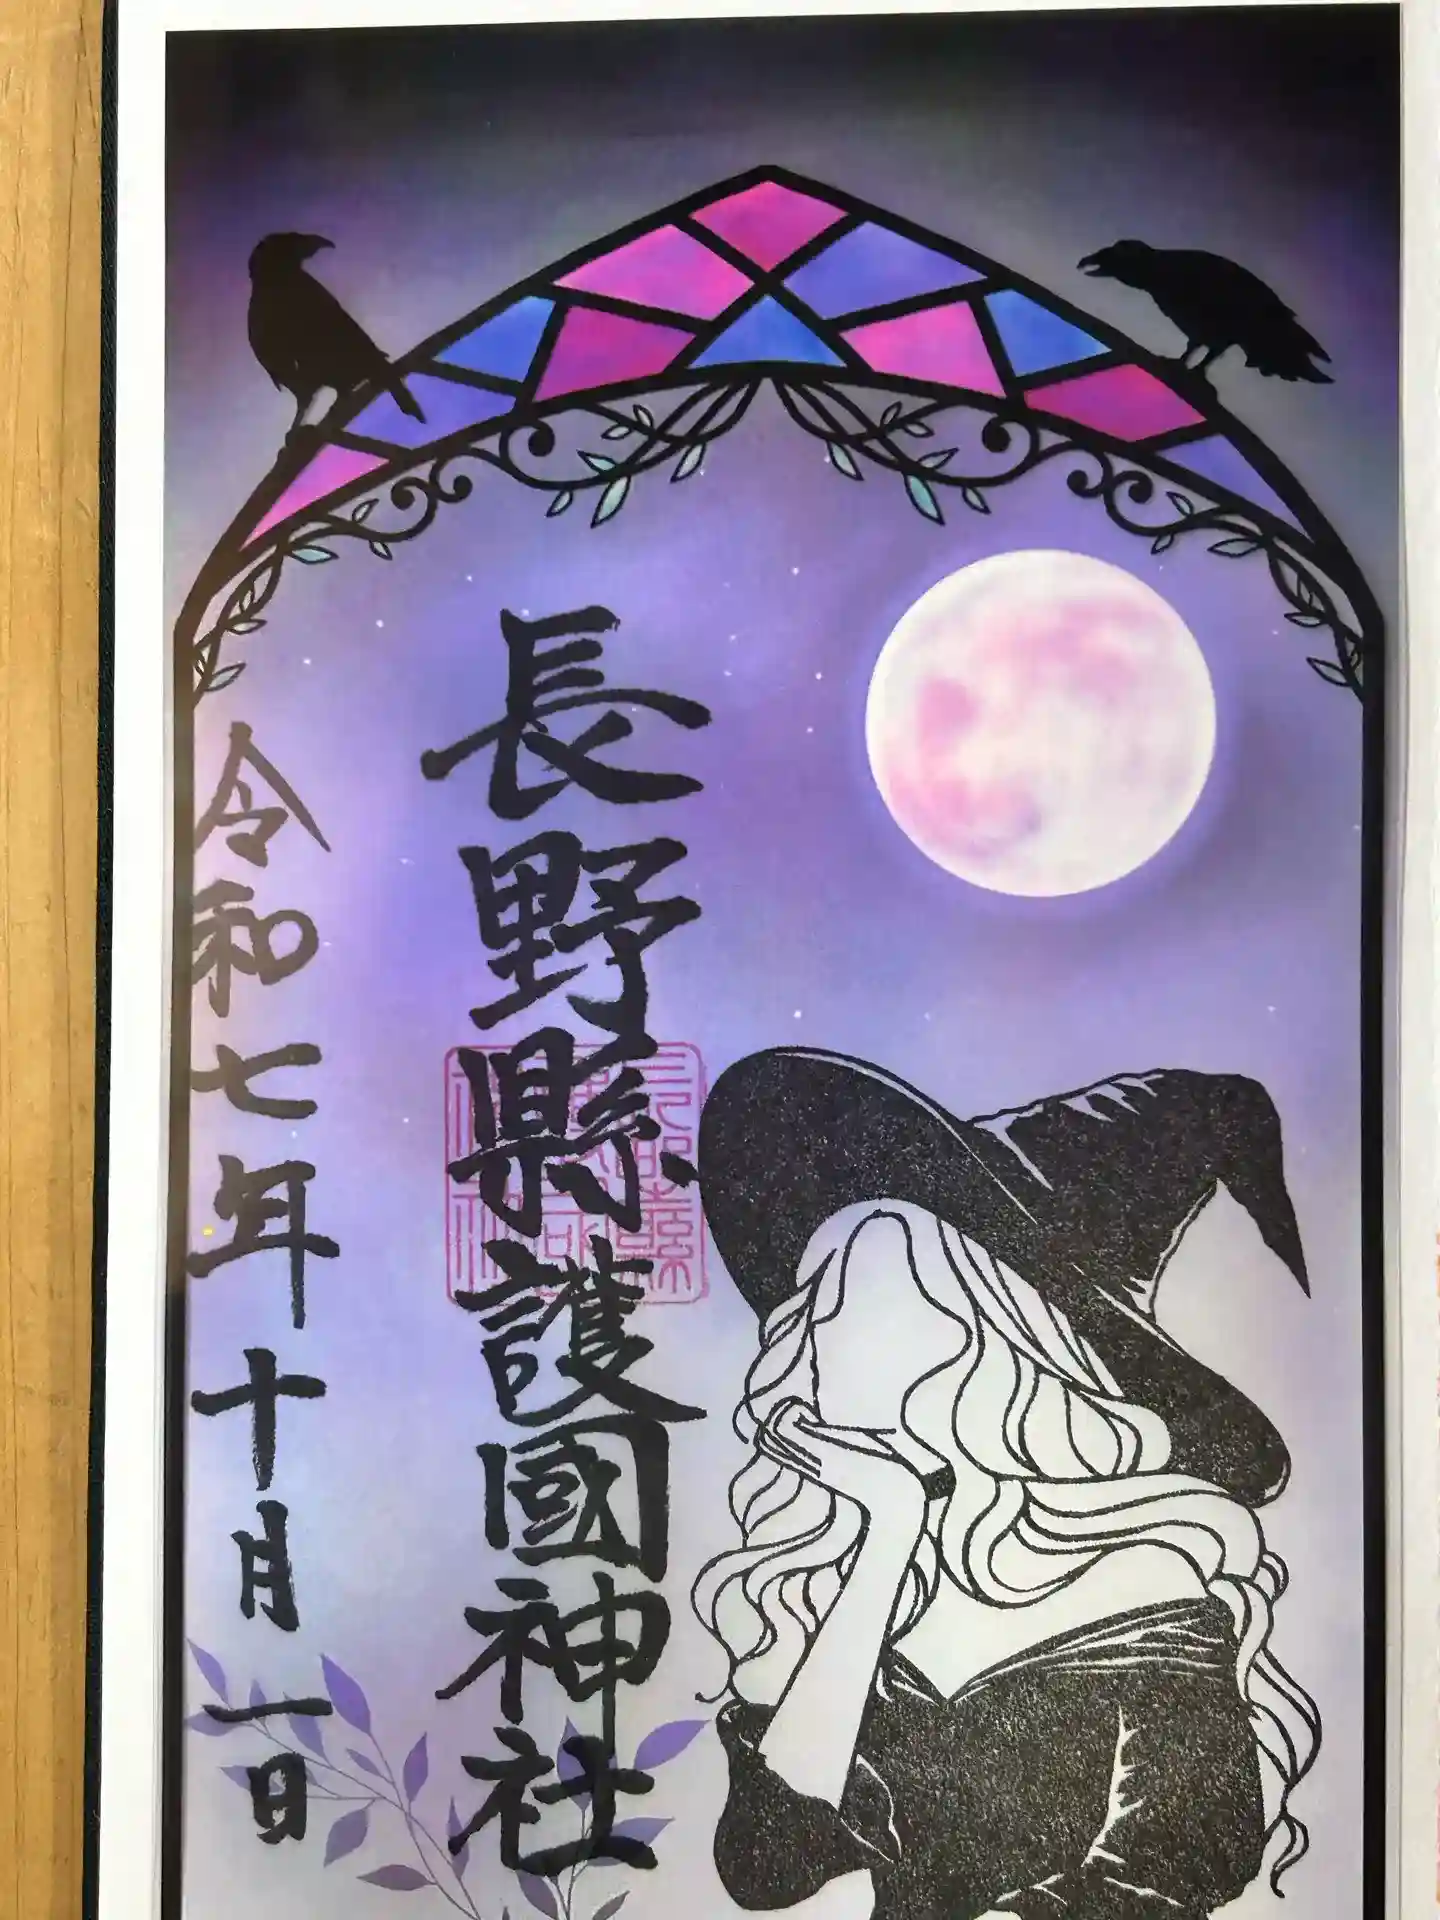 長野縣護國神社
令和七年十月一日